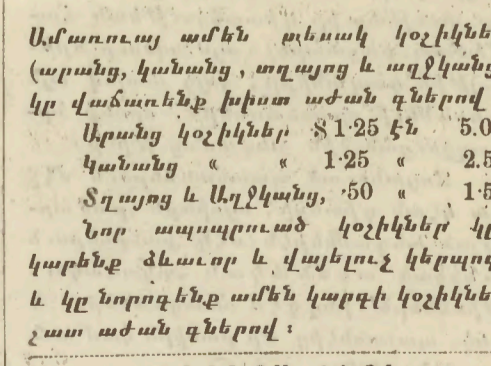 Ամառուայ ամեն տեսակ կօշիկնե
(արանց, կանանց, տղայոց և աղջկանց
կը վաճառենք խիստ աժան գներով
Արանց կօշիկներ $ 1·25 էն 5.0
Կանանց « « 1·25 « 2.5
Տղայոց և Աղջկանց, ·50 « 1·5
Նոր ապսպրուած կօշիկներ կը
կարենք ձևաւոր և վայելուչ կերպով
և կը նորոգենք ամեն կարգի կօշիկնե
շատ աժան գներով ։